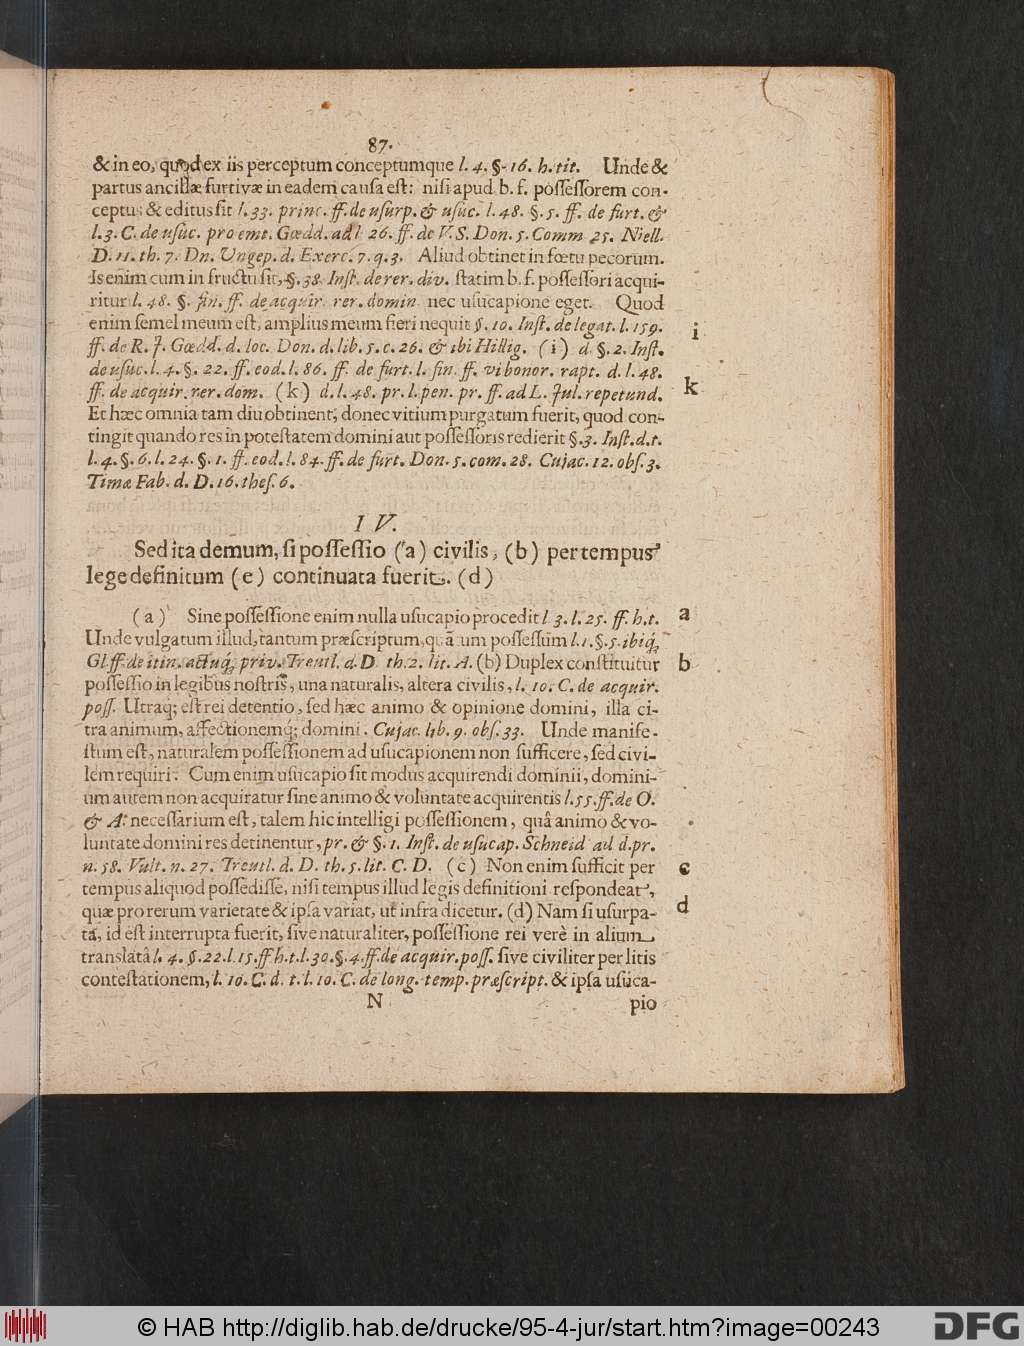 87.
& in eo, quod ex iis perceptum conceptumque l. 4. §. 16. h. tit. Unde &
partus ancillæ furtivæ in eadem cauſa eſt: niſi apud b. f. poſſeſſorem con-
ceptus & editus ſit l. 33. princ. ff. de uſurp. & uſuc. l. 48. §. 5. ff. de furt. &
l. 3. C. de uſuc. pro emt. Gœdd. ad l 26. ff. de V. S. Don. 5. Comm 25. Niell.
D. 11. th. 7. Dn. Ungep. d. Exerc. 7. q. 3. Aliud obtinet in fœtu pecorum.
Is enim cum in fructu ſit, §. 38. Inſt. de rer. div. ſtatim b. f. poſſeſſori acqui-
ritur l. 48. §. fin. ff. de acquir. rer. domin nec uſucapione eget. Quod
enim ſemel meum eſt, amplius meum fieri nequit §. 10. Inſt. de legat. l. 159.
ff. de R. J. Gœdd. d. loc. Don. d. lib. 5. c. 26. & ibi Hillig. (i) d. §. 2. Inſt.
de uſuc. l. 4. §. 22. ff. eod. l. 86. ff. de furt. l. fin. ff. vi bonor. rapt. d. l. 48.
ff. de acquir. rer. dom. (k) d. l. 48. pr. l. pen. pr. ff. ad L. Jul. repetund.
Et hæc omnia tam diu obtinent, donec vitium purgatum fuerit, quod con-
tingit quando res in poteſtatem domini aut poſſeſſoris redierit §. 3. Inſt. d. t.
l. 4. §. 6. l. 24. §. 1. ff. eod. l. 84. ff. de furt. Don. 5. com. 28. Cujac. 12. obſ. 3.
Timæ Fab. d. D. 16. theſ. 6.
i
k
IV.
Sed ita demum, ſi poſſeſſio (a) civilis, (b) per tempus
lege definitum (e) continuata fuerit. (d)
(a) Sine poſſeſſione enim nulla uſucapio procedit l 3. l. 25. ff. h. t.
Unde vulgatum illud, tantum præſcriptum, quātum poſſeſſum l. 1. §. 5. ibiq́;
Gl. ff. de itin. actuq́; priv. Treutl. d. D. th. 2. lit. A. (b) Duplex conſtituitur
poſſeſſio in legibus noſtris, una naturalis, altera civilis, l. 10. C. de acquir.
poſſ. Utraq; eſt rei detentio, ſed hæc animo & opinione domini, illa ci-
tra animum, affectionemq́; domini. Cujac. lib. 9. obſ. 33. Unde manife-
ſtum eſt, naturalem poſſeſſionem ad uſucapionem non ſufficere, ſed civi-
lem requiri. Cum enim uſucapio ſit modus acquirendi dominii, domini-
um autem non acquiratur ſine animo & voluntate acquirentis l. 55. ff. de O.
& A. neceſſarium eſt, talem hic intelligi poſſeſſionem, quâ animo & vo-
luntate domini res detinentur, pr. & §. 1. Inſt. de uſucap. Schneid ad d. pr.
n. 58. Vult. n. 27. Treutl. d. D. th. 5. lit. C. D. (c) Non enim ſufficit per
tempus aliquod poſſediſſe, niſi tempus illud legis definitioni reſpondeat,
quæ pro rerum varietate & ipſa variat, ut infra dicetur. (d) Nam ſi uſurpa-
ta, id eſt interrupta fuerit, ſive naturaliter, poſſeſſione rei verè in alium
translatâ l. 4. §. 22. l. 15. ff h. t. l. 30. §. 4. ff. de acquir. poſſ. ſive civiliter per litis
conteſtationem, l. 10. C. d. t. l. 10. C. de long. temp. præſcript. & ipſa uſuca-
a
b
c
d
N
pio
© HAB http://diglib.hab.de/drucke/95-4-jur/start.htm?image=00243
DFG